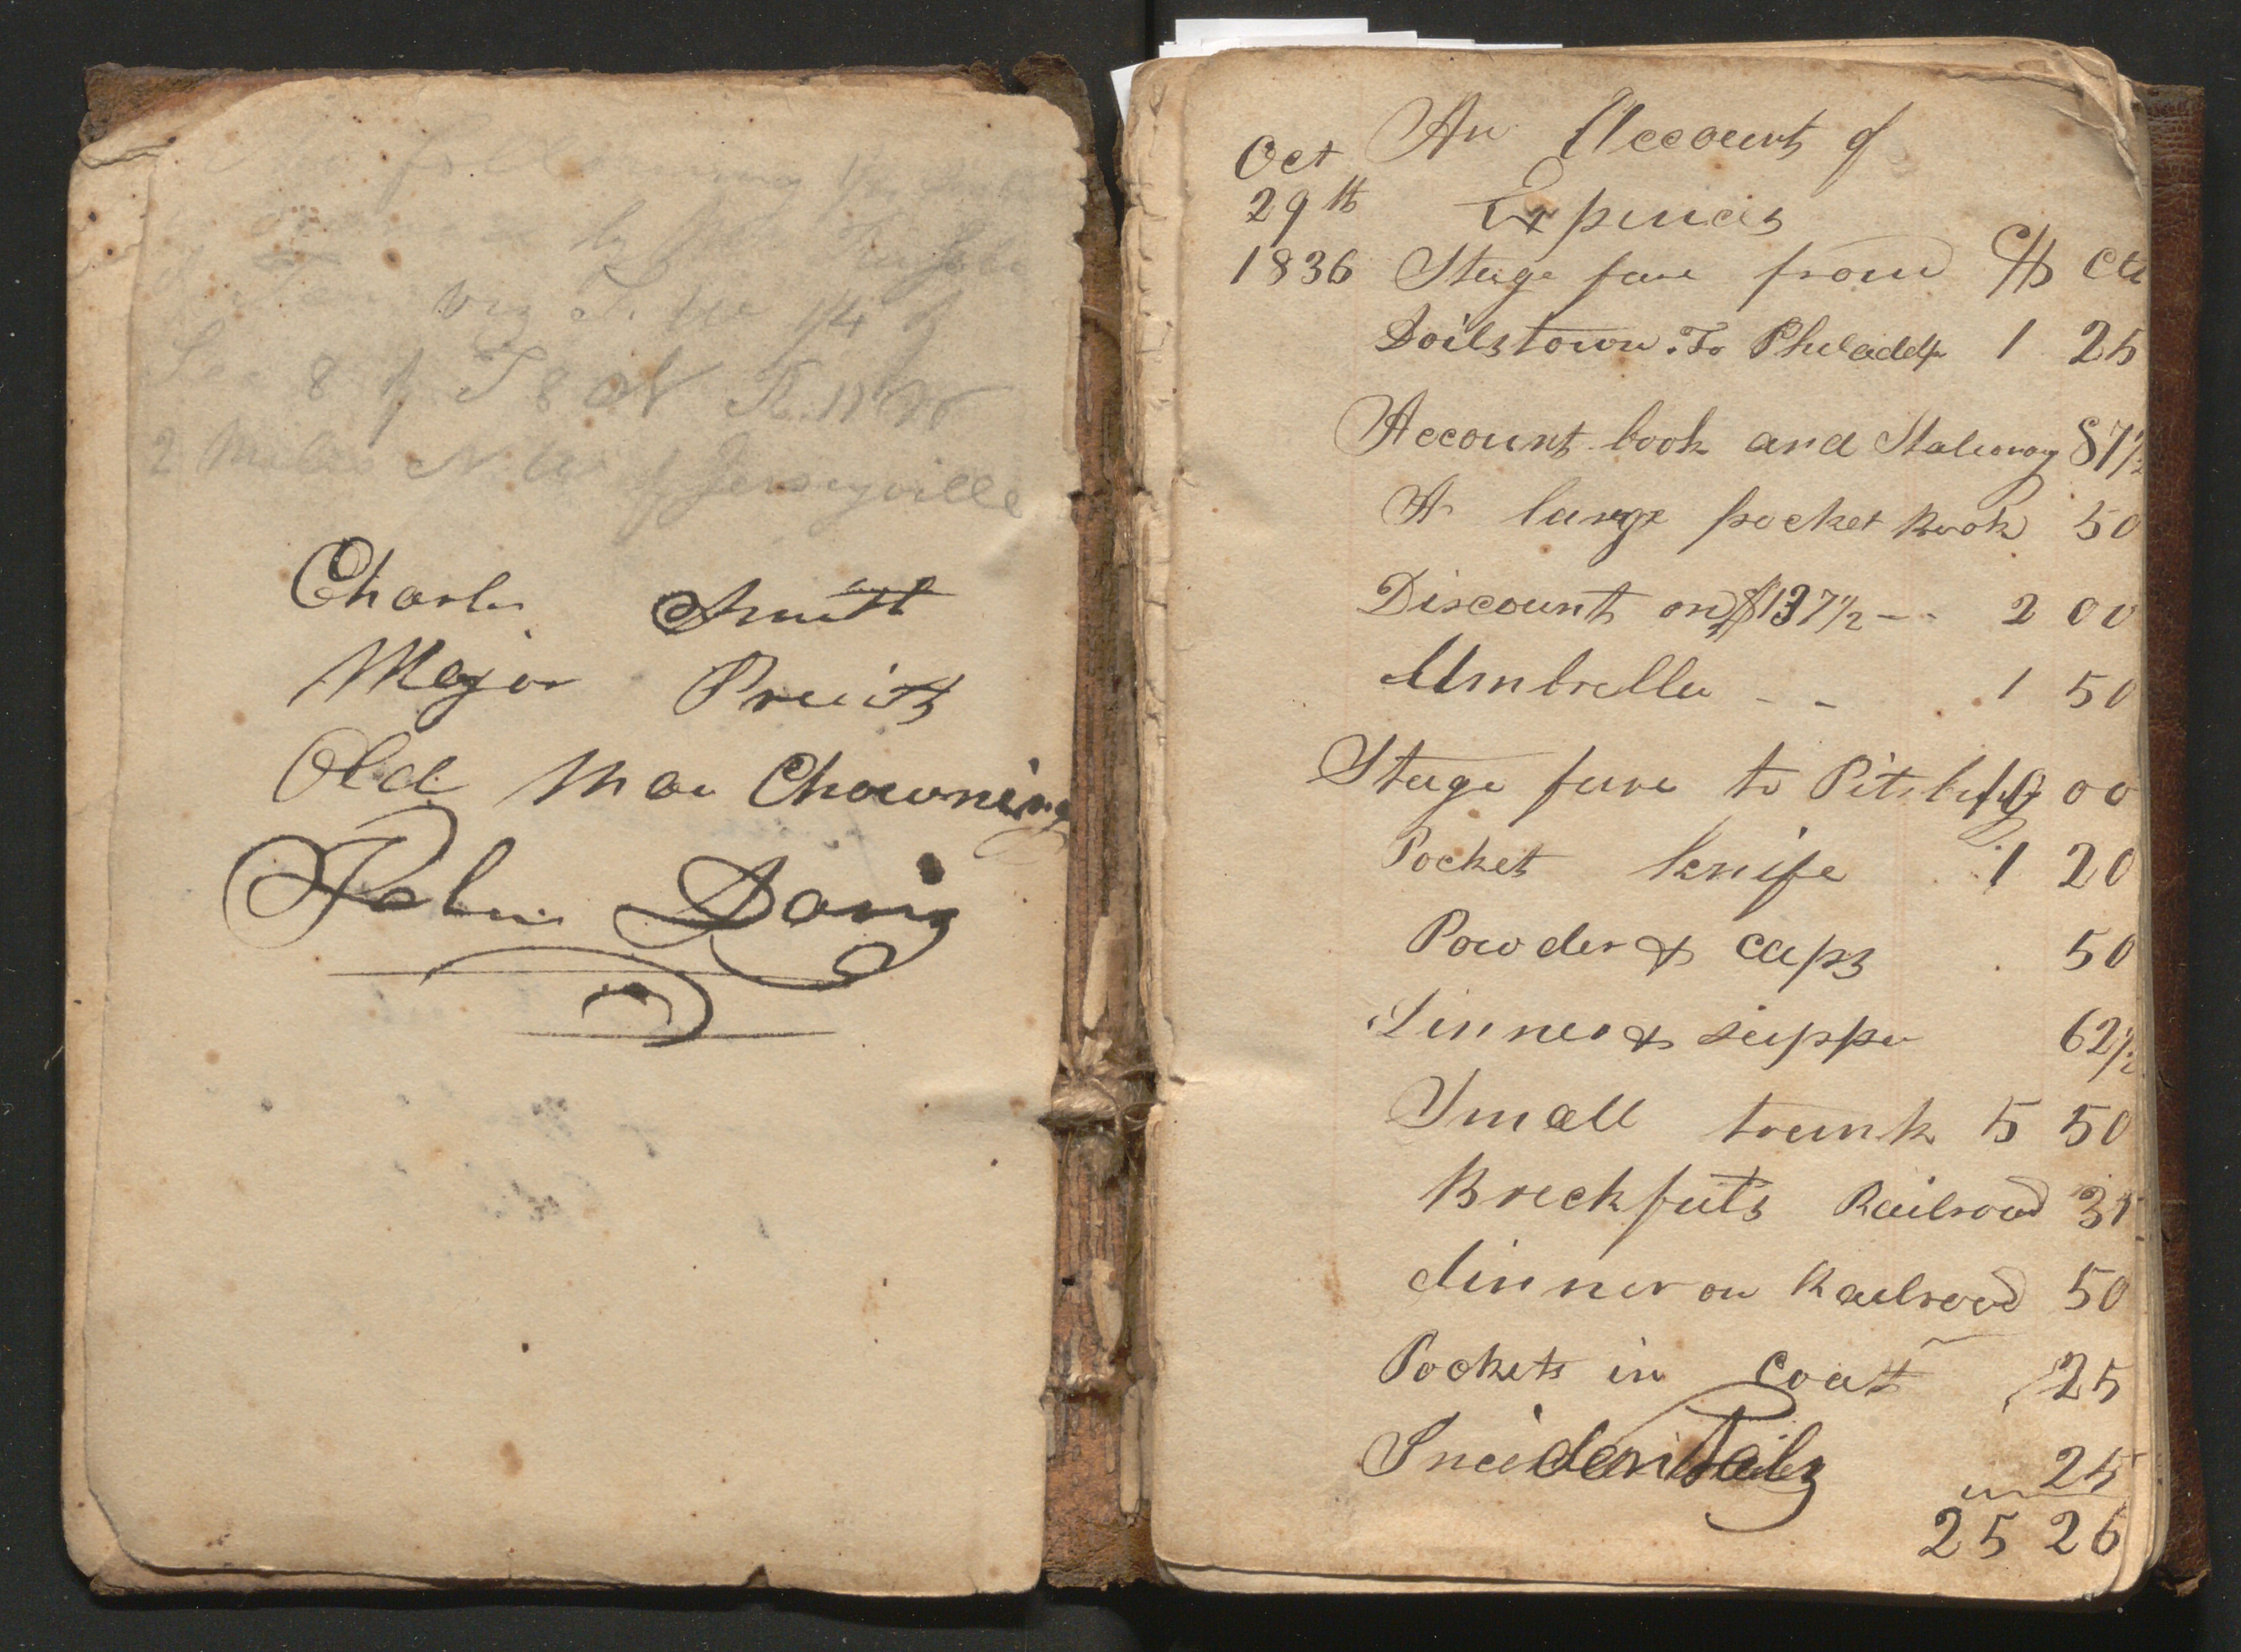 following
by
viz T. W 1/4 of
Sec 8 of T 8 N R. 11 W
2 Miles N. W of Jerseyville
Charles Smith
Major Pruits
Old Man Chowning
John Davis
An Account of
Oct
29th Expences
1836 Stage fare from $ Cts
Doilstown. To Philadelp 1 25
Account book and Stationary 87 1/2
A large pocket Book 50
Discount on $137 1/2 - - 2 00
Umbrella - - 1 50
Stage fare to Pitsburg 10 00
Pocket knife 1 20
Powder & caps 50
Dinner & supper 62 1/2
Small trunk 5 50
Breckfuts Railroad 31
dinner on Railroad 50
Pockets in Coat 25
Incidentails 25
25 26